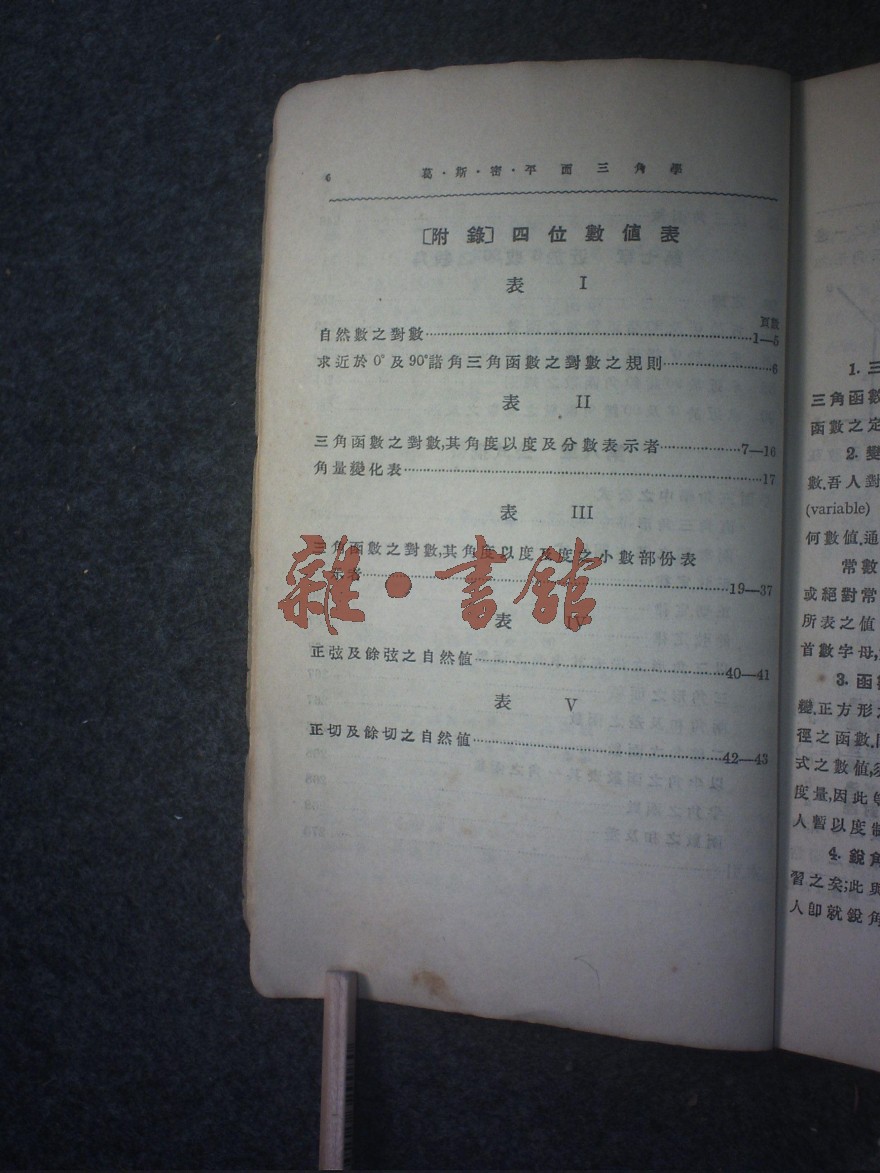 6
葛·斯·密·平面三角學
〔附錄〕四位數值表
表 I
頁數
自然數之對數……1—5
求近於0°及90°諸角三角函數之對數之規則……6
表 II
三角函數之對數,其角度以度及分數表示者……7—16
角量變化表……17
表 III
三角函數之對數,其角度以度及度之小數部份表
示者……19—37
表 IV
正弦及餘弦之自然值……40—41
表 V
正切及餘切之自然值……42—43
雜·書館
1. 三
三角函數
函數之定
2. 變
數,吾人對
(variable)
何數值,通
常數
或絕對常
所表之值
首數字母,
3. 函數
變,正方形之
徑之函數,
式之數值,
度量,因此
人暫以度制
4. 銳角
習之矣;此與
人卽就銳角